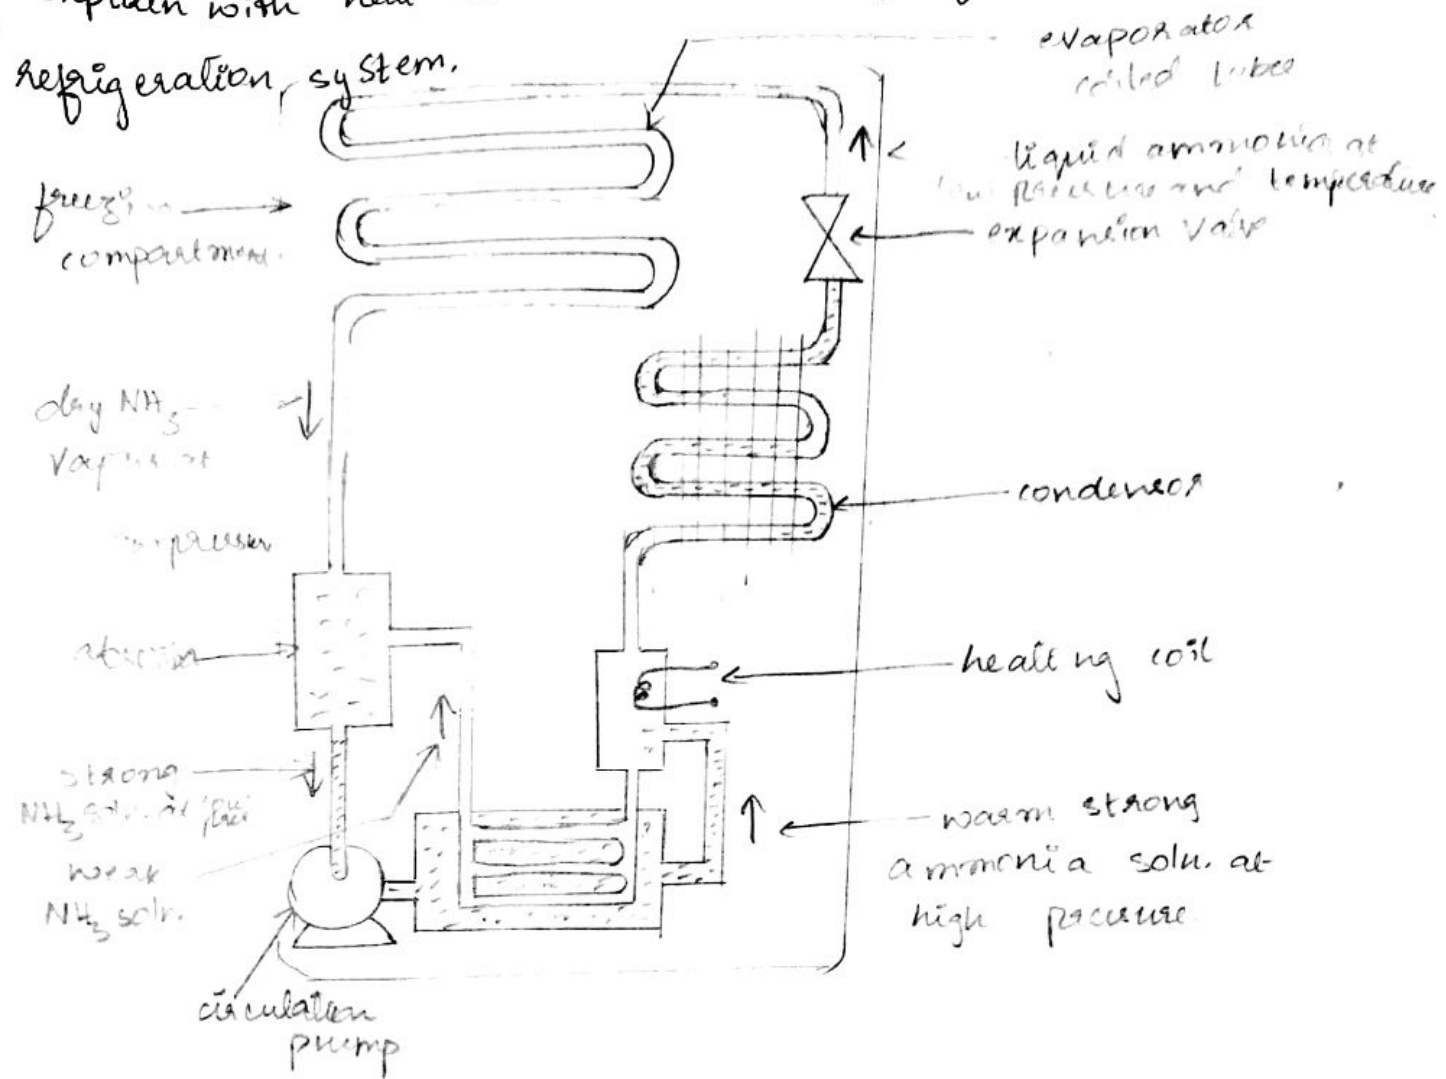 explain with neat
refrigeration system.
evaporator
coiled tubes
liquid ammonia at
pressure and temperature
expansion valve
compartment.
dry NH3
Vapour at
condensor
heating coil
strong
NH3 soln. at
weak
NH3 soln.
warm strong
ammonia soln. at
high pressure
circulation
pump